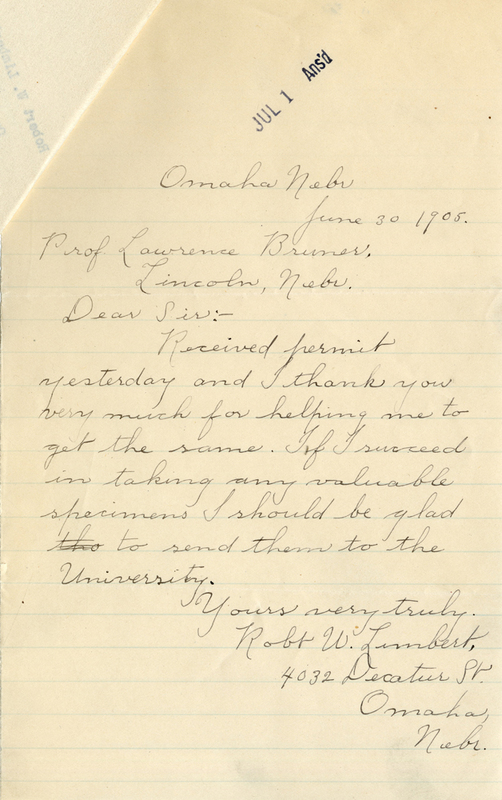 JUL 1 Ans'd
Omaha Nebr
June 30 1905.
Prof. Lawrence Bruner,
Lincoln, Nebr.
Dear Sir:-
Received permit
yesterday and I thank you
very much for helping me to
get the same. If I succeed
in taking any valuable
specimens I should be glad
tho to send them to the
University.
Yours very truly.
Robt W. Limbert,
4032 Decatur St.
Omaha,
Nebr.